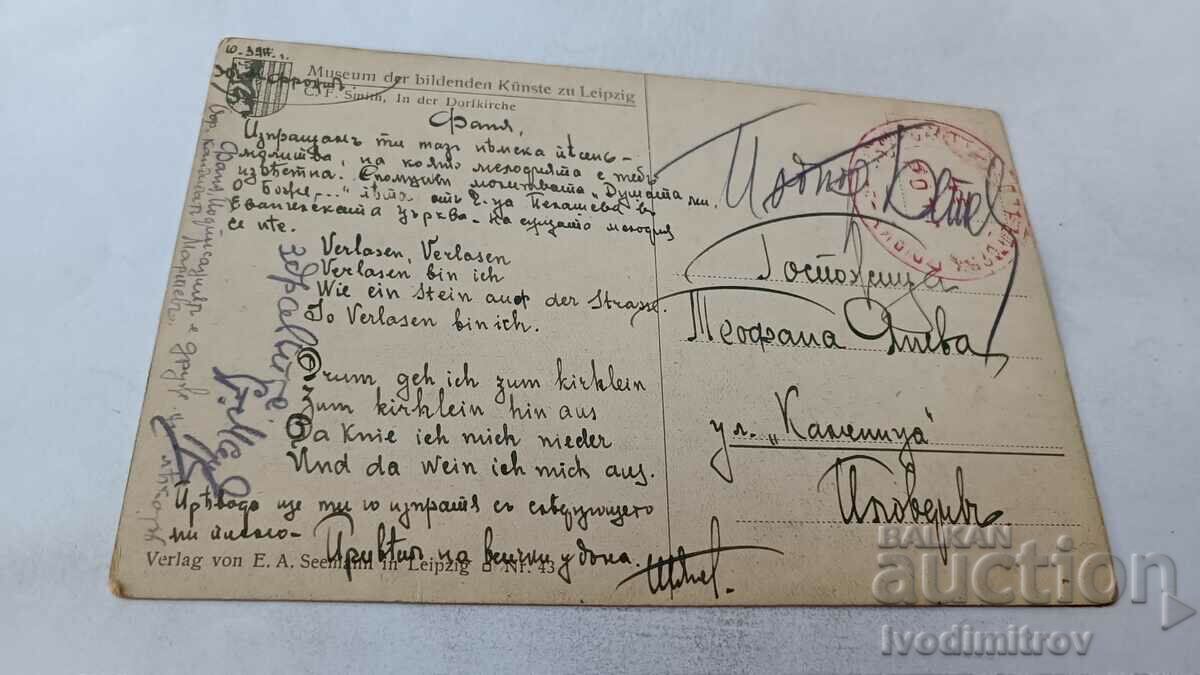 Museum der bildenden Künste zu Leipzig
C. F. Smith, In der Dorfkirche
Фаня,
Изпращамъ ти тази нѣмска пѣсень-
молитва, на която мелодията е тебъ
извѣстна. Спомни си молитвата „Душата ми
о Боже,..." пѣта отъ г-ца Пекашева въ
Евангелската църква - на същата мелодия
се пѣе.
Verlasen, Verlasen
Verlasen bin ich
Wie ein Stein auf der Strasse.
So Verlasen bin ich.
Drum geh ich zum kirklein
Zum kirklein hin aus
Da Knie ich mich nieder
Und da wein ich mich aus.
Прѣвода ще ти го изпратя съ следующето
ми писмо-
Привѣтъ на всички у дома.
Verlag von E. A. Seemann in Leipzig Nr. 43
здравите
Фаня Подписания е другь
Госпожица
Теофана
ул. „Каменица"
Пловдивъ
BALKAN
auction
Ivodimitrov